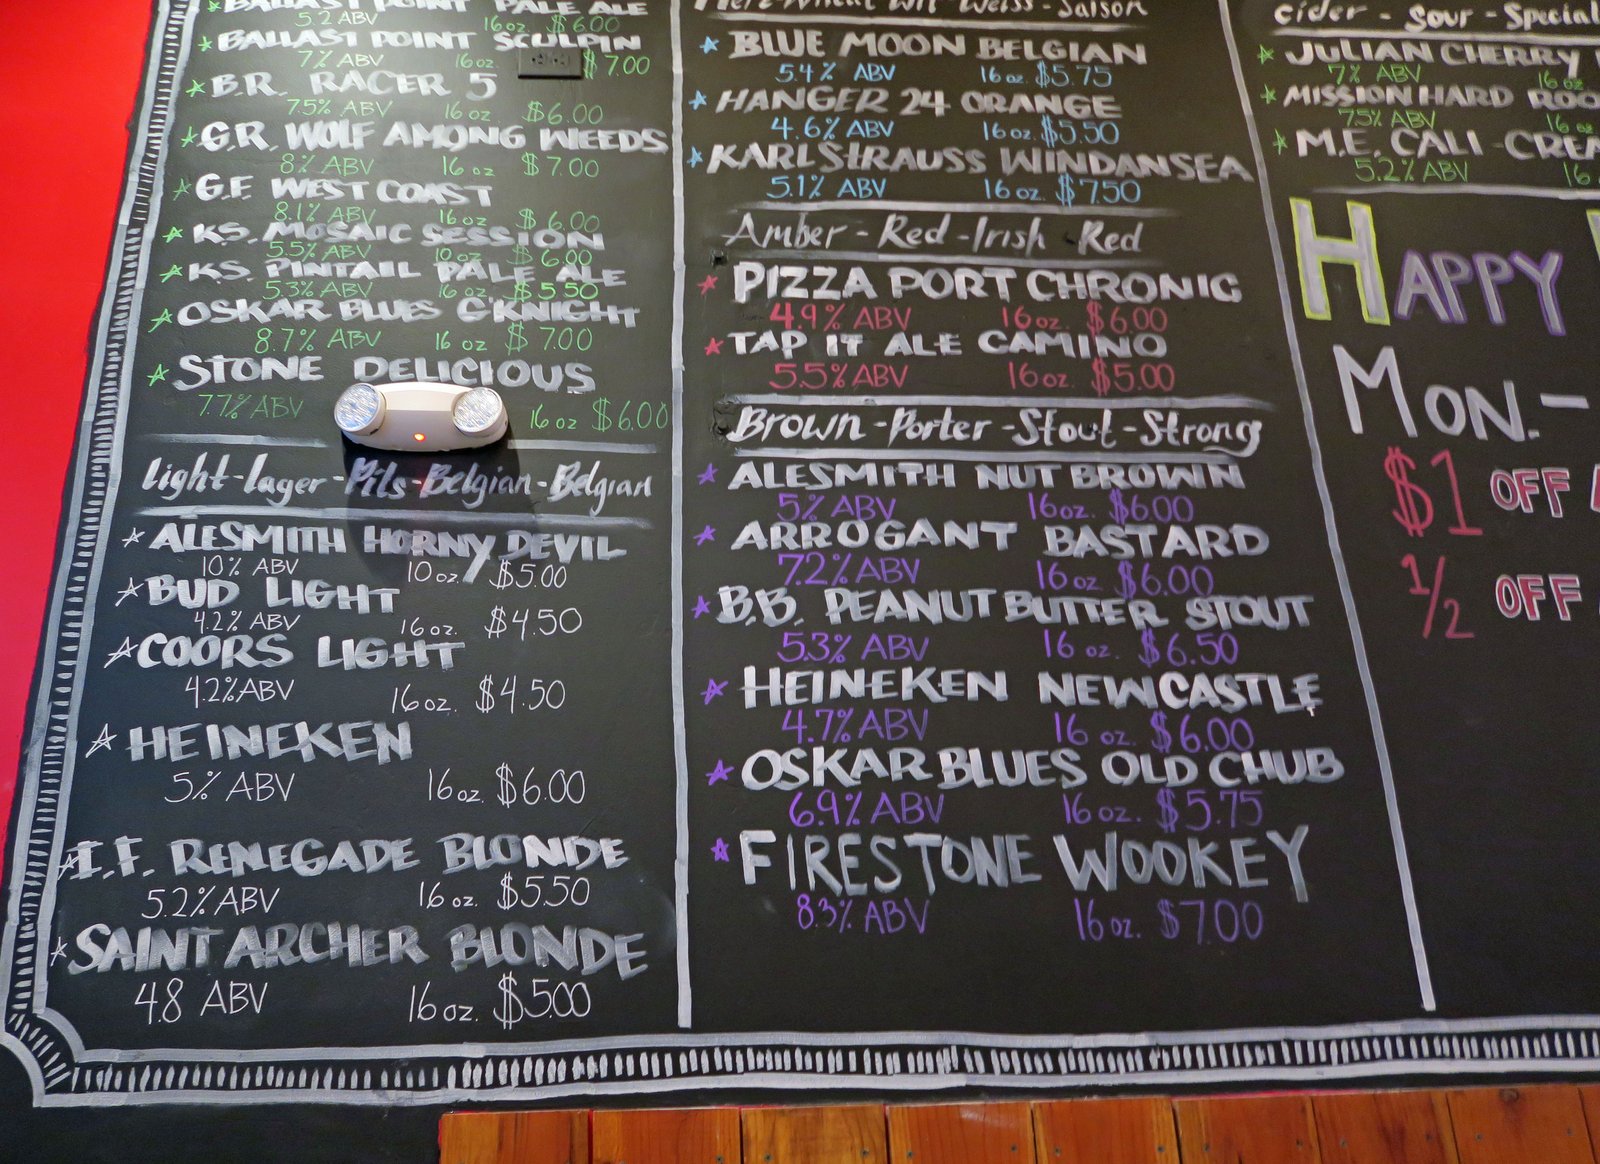 BALLAST POINT PALE ALE
5.2 ABV 16oz $6.00
BALLAST POINT SCULPIN
7% ABV 16oz. $7.00
B.R. RACER 5
7.5% ABV 16 oz $6.00
G.R. WOLF AMONG WEEDS
8% ABV 16 oz $7.00
G.F. WEST COAST
8.1% ABV 16oz $6.00
K.S. MOSAIC SESSION
5.5% ABV 10 oz $6.00
K.S. PINTAIL PALE ALE
5.3% ABV 16oz. $5.50
OSKAR BLUES G'KNIGHT
8.7% ABV 16 oz $7.00
STONE DELICIOUS
7.7% ABV 16 oz $6.00
Light-Lager-Pils-Belgian-Belgian
ALESMITH HORNY DEVIL
10% ABV 10oz. $5.00
BUD LIGHT
4.2% ABV 16oz. $4.50
COORS LIGHT
4.2% ABV 16oz. $4.50
HEINEKEN
5% ABV 16oz. $6.00
I.F. RENEGADE BLONDE
5.2% ABV 16oz. $5.50
SAINT ARCHER BLONDE
4.8 ABV 16oz. $5.00
Hefe-Wheat Wit-Weiss-Saison
BLUE MOON BELGIAN
5.4% ABV 16oz. $5.75
HANGER 24 ORANGE
4.6% ABV 16oz. $5.50
KARL STRAUSS WINDANSEA
5.1% ABV 16oz. $7.50
Amber-Red-Irish Red
PIZZA PORT CHRONIC
4.9% ABV 16oz. $6.00
TAP IT ALE CAMINO
5.5% ABV 16oz. $5.00
Brown-Porter-Stout-Strong
ALESMITH NUT BROWN
5% ABV 16oz. $6.00
ARROGANT BASTARD
7.2% ABV 16oz. $6.00
B.B. PEANUT BUTTER STOUT
5.3% ABV 16 oz. $6.50
HEINEKEN NEWCASTLE
4.7% ABV 16 oz. $6.00
OSKAR BLUES OLD CHUB
6.9% ABV 16 oz. $5.75
FIRESTONE WOOKEY
8.3% ABV 16 oz. $7.00
Cider-Sour-Special
JULIAN CHERRY
7% ABV 16 oz
MISSION HARD ROO
7.5% ABV 16 oz
M.E. CALI-CREA
5.2% ABV 16
HAPPY
MON.-
$1 OFF
1/2 OFF